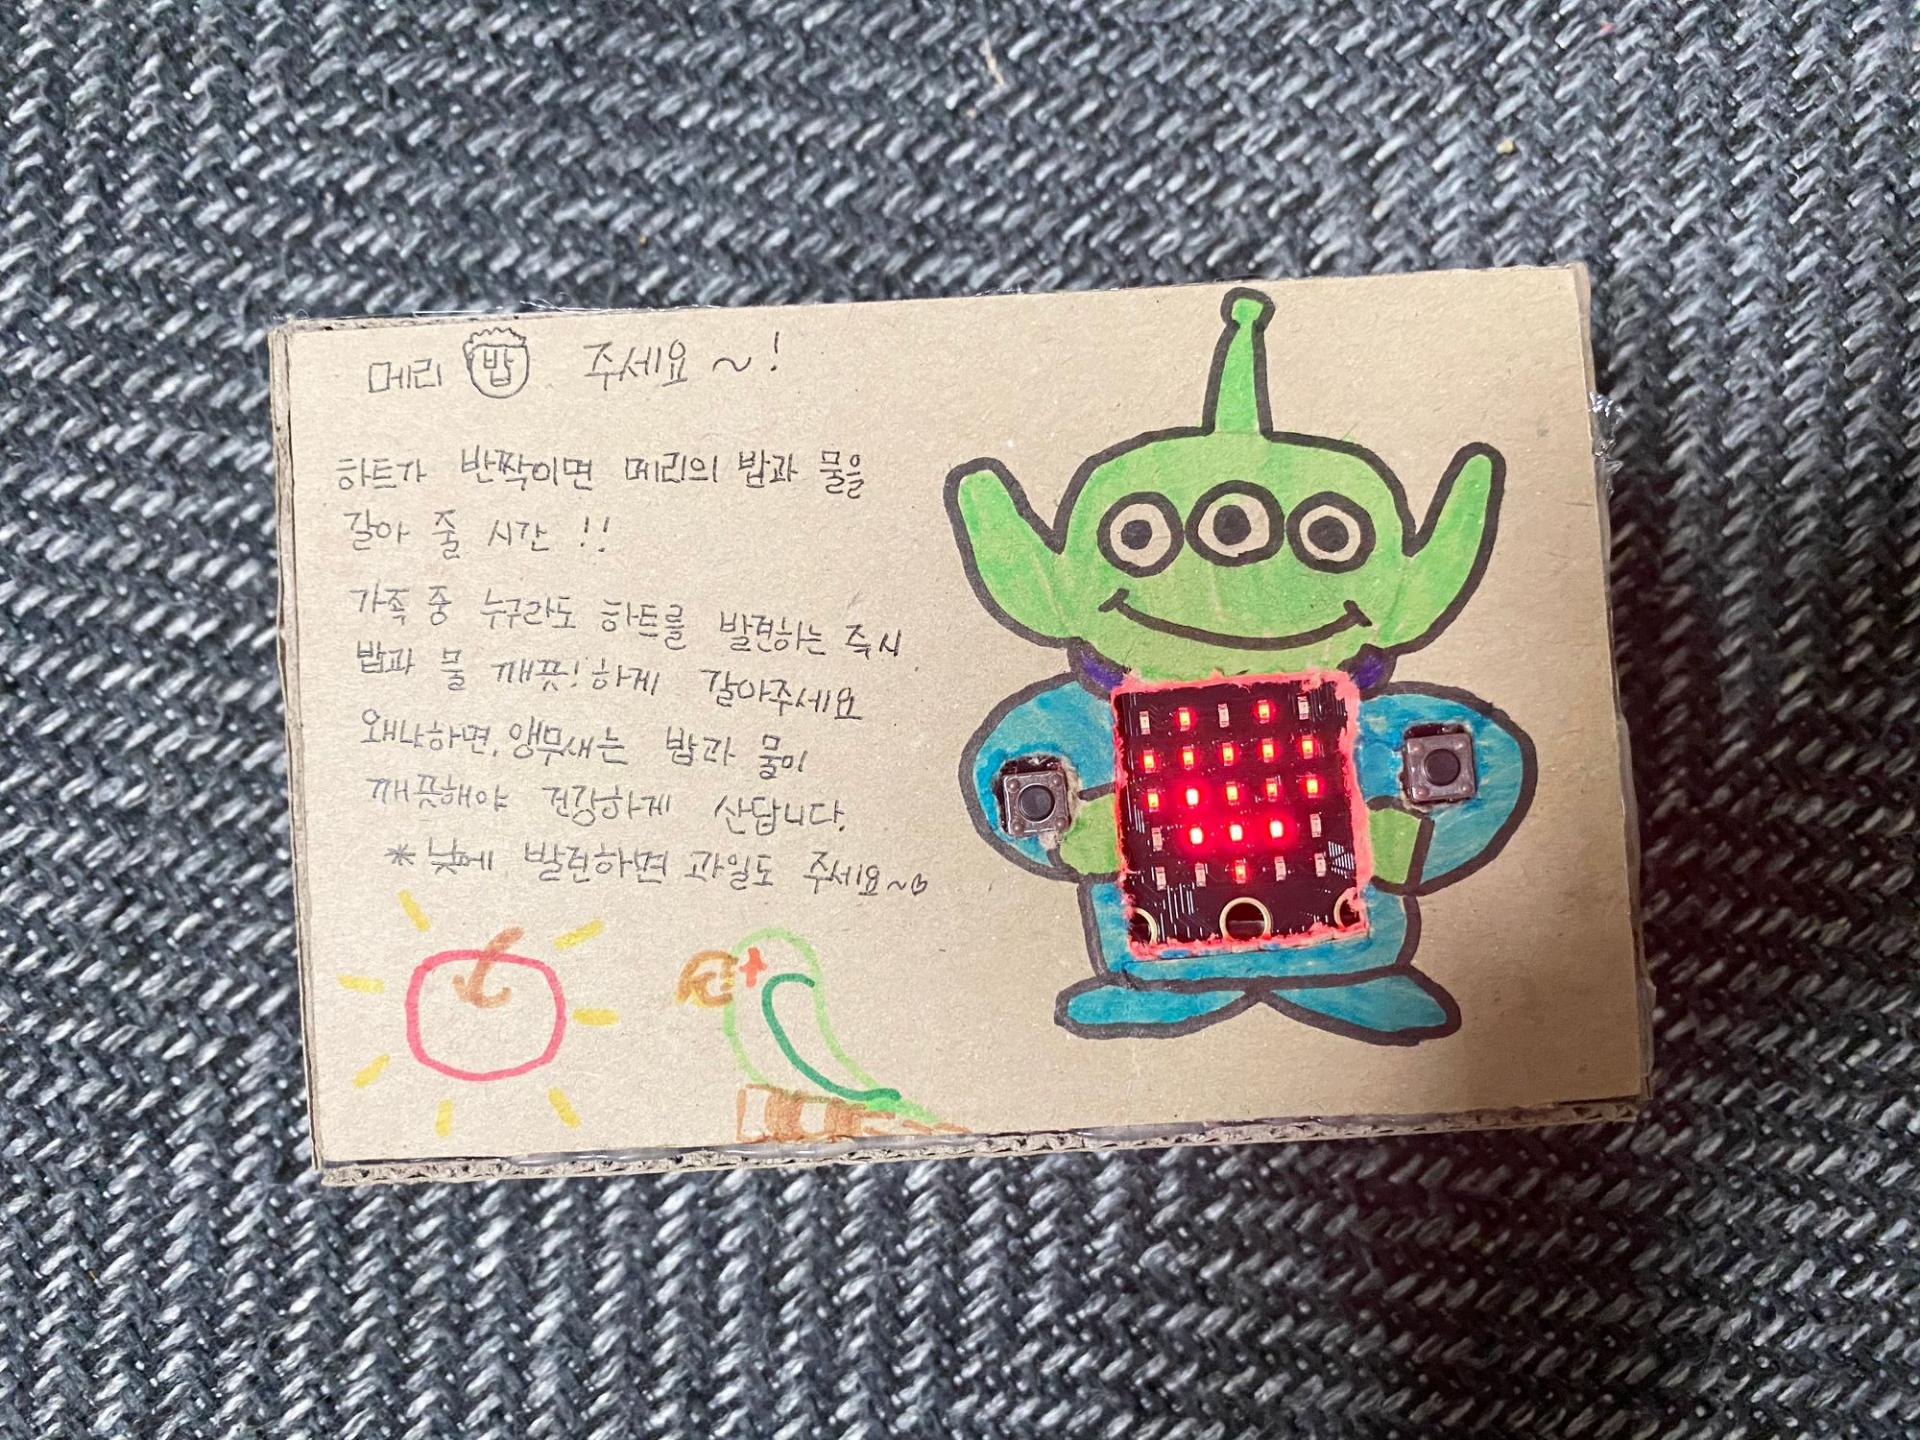 메리 밥 주세요 ~ !
하트가 반짝이면 메리의 밥과 물을
갈아 줄 시간 !!
가족 중 누구라도 하트를 발견하는 즉시
밥과 물 깨끗! 하게 갈아주세요
왜냐하면, 앵무새는 밥과 물이
깨끗해야 건강하게 산답니다.
* 낮에 발견하면 과일도 주세요~♡